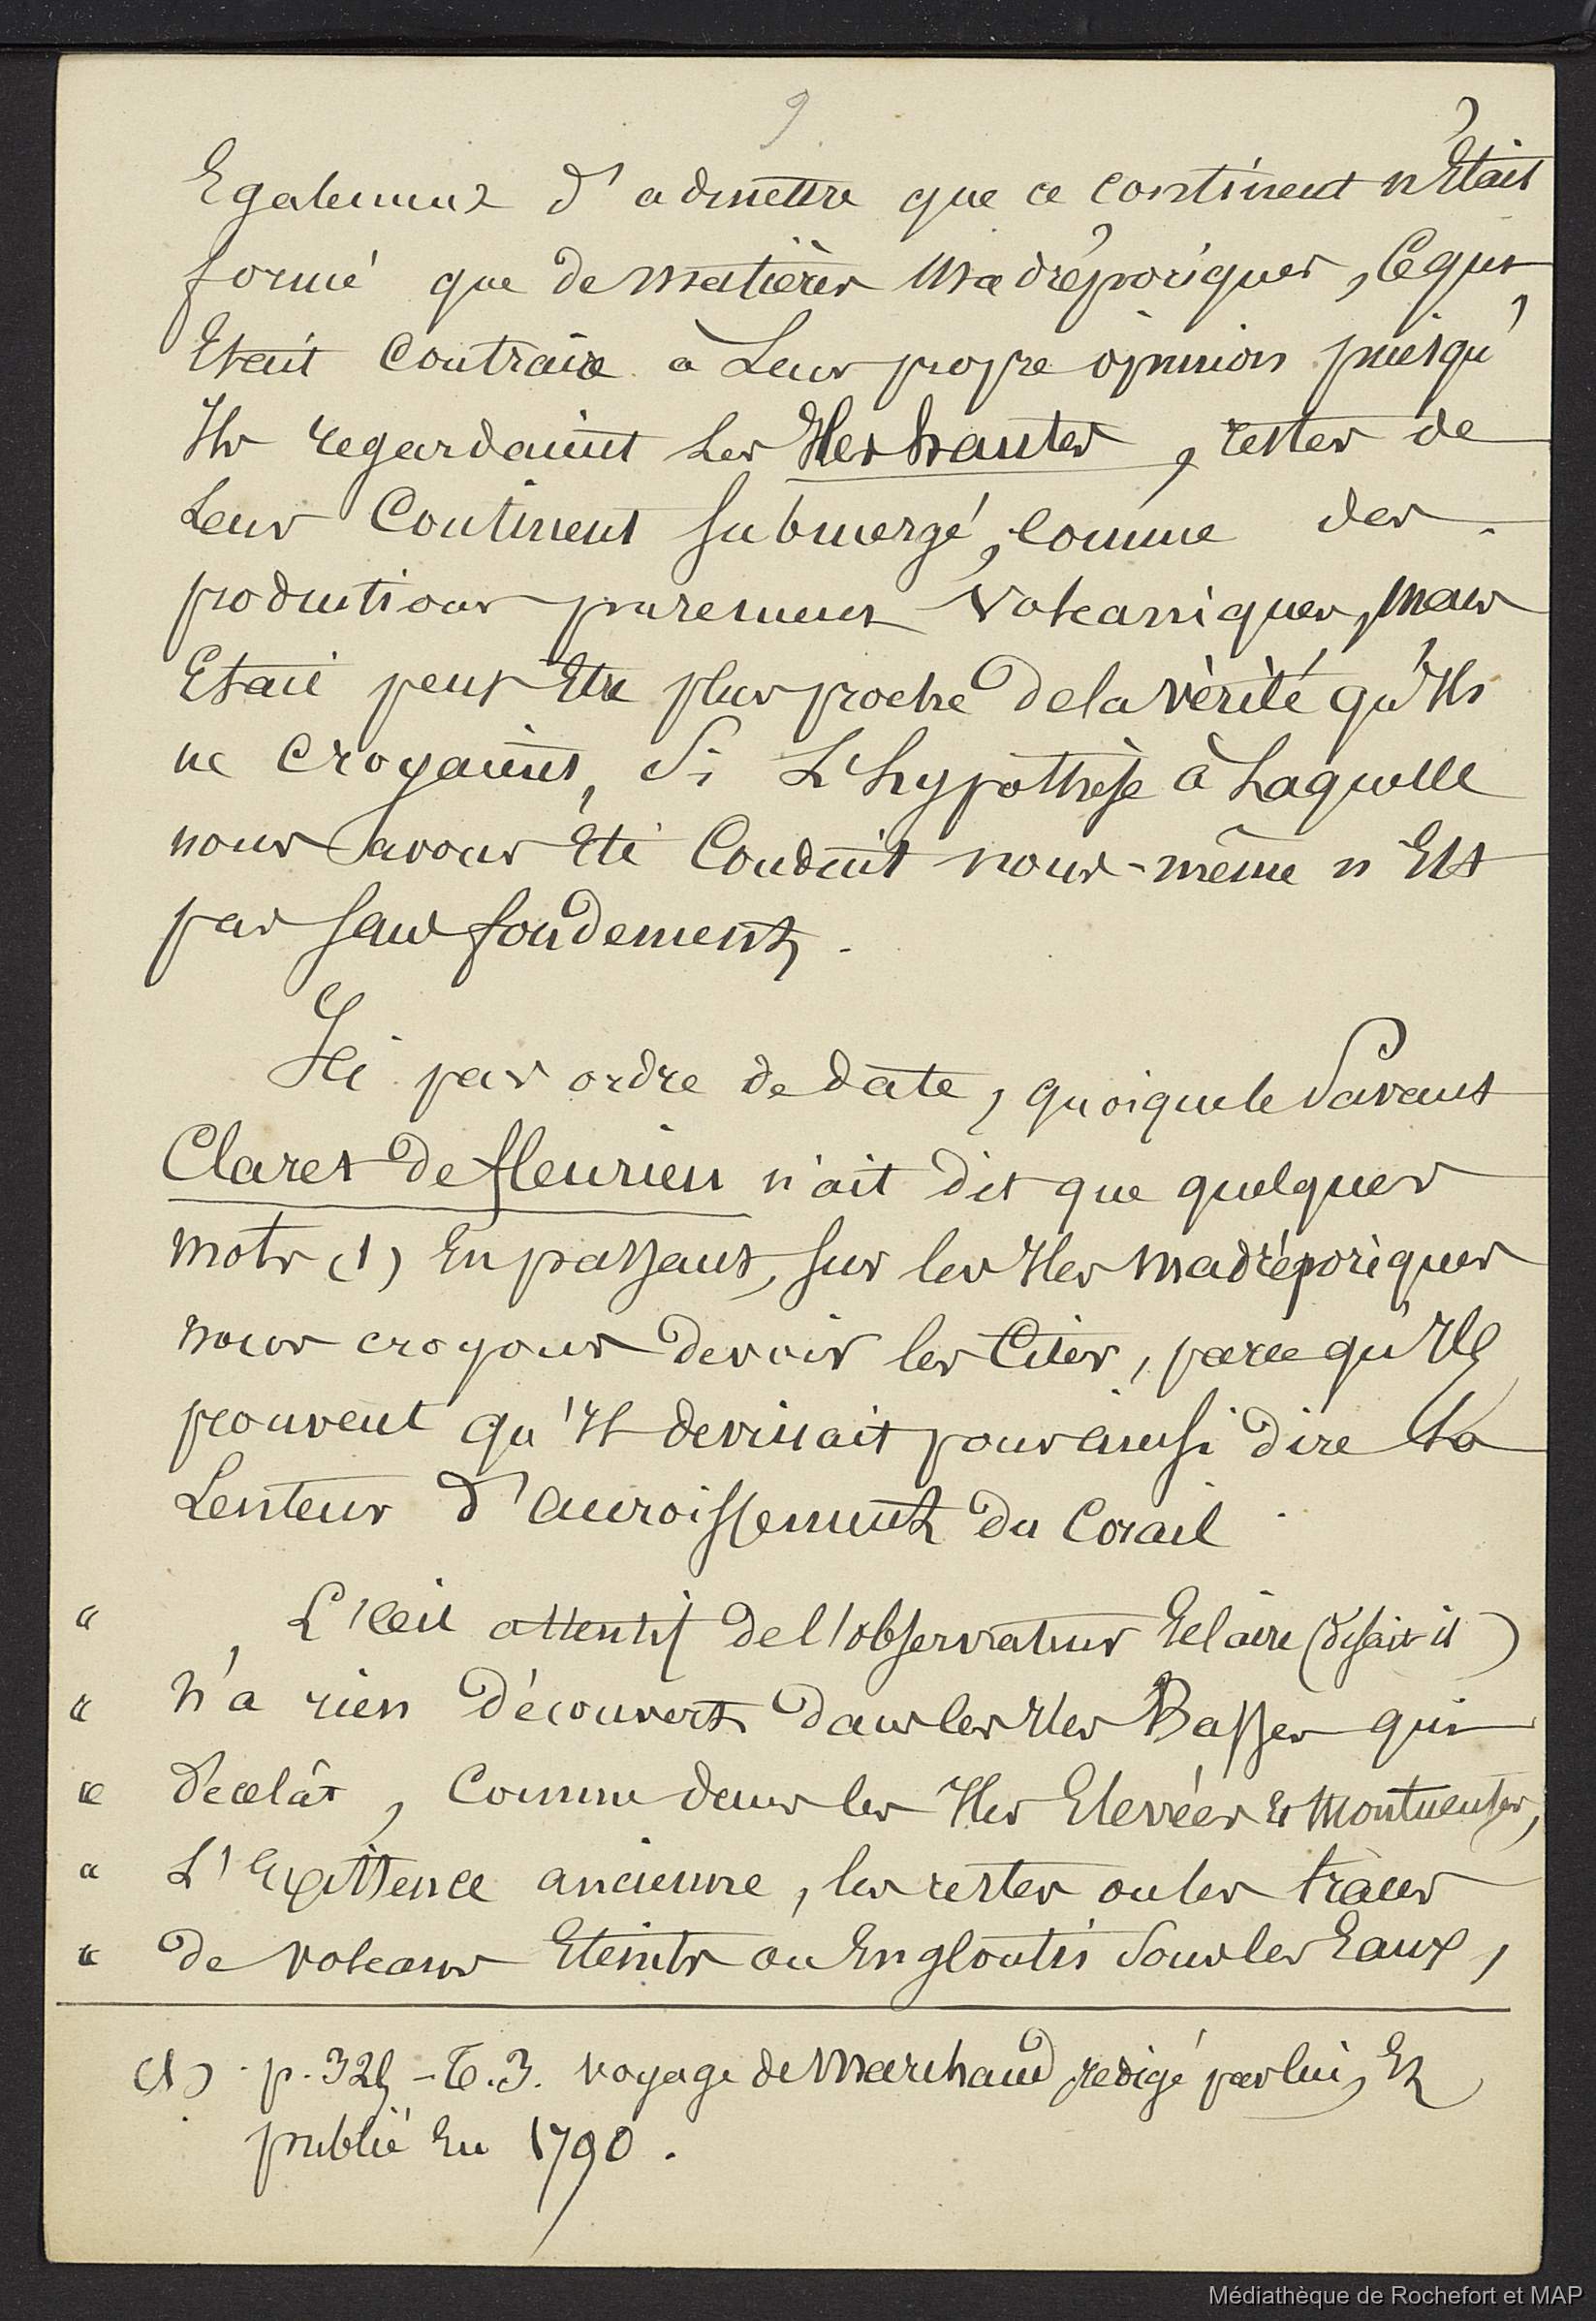 9
Egalement d'admettre que ce continent n'Etait
formé que de matières Madréporiques, Ce qui
Etait Contraire à Leur propre opinion puisqu'
Ils regardaient Les Iles hautes, restes de
Leur Continent submergé, Comme des
productions purement Volcaniques, Mais
Etait peut Etre plus proche de la vérité qu'Ils
ne Croyaient, Si L'hypothèse à Laquelle
nous avons Eté Conduit nous-même n'Est
pas sans fondement.
Ici par ordre de date, quoique le Savant
Claret de fleurieu n'ait dit que quelques
mots (1) En passant, sur les Iles Madréporiques
nous croyons devoir les Citer, parce qu'Ils
prouvent qu'Il devinait pour ainsi dire La
Lenteur d'accroissement du Corail.
" L'œil attentif de l'observateur Eclairé (disait il)
" n'a rien découvert dans les Iles Basses qui
" décelât, Comme dans les Iles Elevées & Montueuses,
" L'Existence ancienne, les restes ou les traces
" de volcans Eteints ou Engloutis Sous les Eaux,
(1) p. 325 - T. 3. voyage de Marchand redigé par lui, Et
publié En 1790.
Médiathèque de Rochefort et MAP